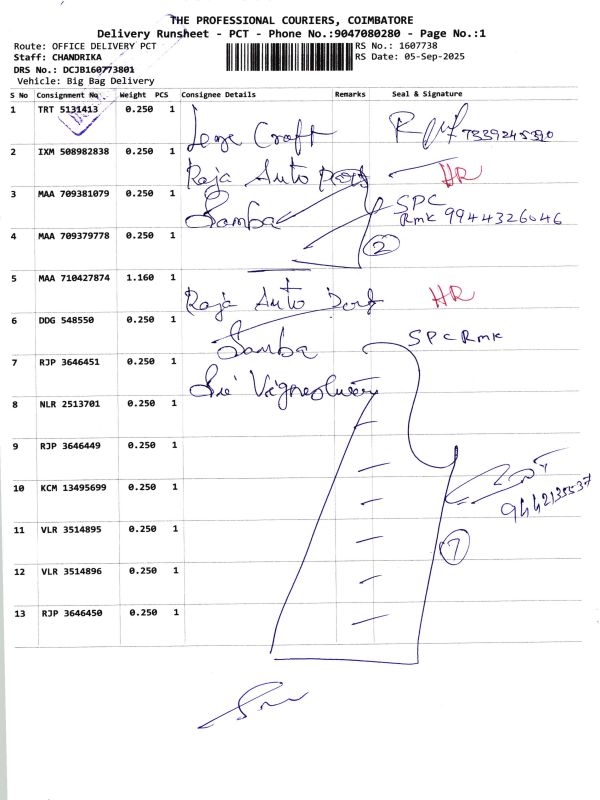 THE PROFESSIONAL COURIERS, COIMBATORE
Delivery Runsheet - PCT - Phone No.:9047080280 - Page No.:1
Route: OFFICE DELIVERY PCT RS No.: 1607738
Staff: CHANDRIKA RS Date: 05-Sep-2025
DRS No.: DCJB160773801
Vehicle: Big Bag Delivery
S No Consignment No Weight PCS Consignee Details Remarks Seal & Signature
1 TRT 5131413 0.250 1 Craft
2 IXM 508982838 0.250 1 Raja Auto HR
3 MAA 709381079 0.250 1 Samba SPC
Rmk 9944326046
4 MAA 709379778 0.250 1 2
5 MAA 710427874 1.160 1 Raja Auto HR
6 DDG 548550 0.250 1 Samba SPC Rmk
7 RJP 3646451 0.250 1
8 NLR 2513701 0.250 1
9 RJP 3646449 0.250 1
10 KCM 13495699 0.250 1 9442135537
11 VLR 3514895 0.250 1 7
12 VLR 3514896 0.250 1
13 RJP 3646450 0.250 1